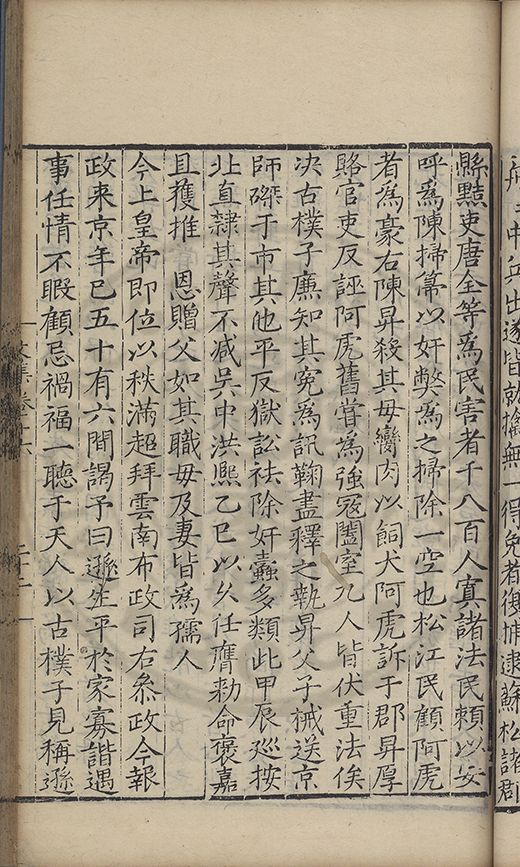 兵出遂皆就撫無一得免者復捕逮蘇松諸郡
縣黠吏唐全等為民害者千八百人寘諸法民賴以安
呼為陳掃箒以奸弊為之掃除一空也松江民顧阿虎
者為豪右陳昇殺其母臠肉以飼犬阿虎訴于郡昇厚
賂官吏反誣阿虎舊嘗為強寇闔室九人皆伏重法俟
决古樸子廉知其寃為訊鞠盡釋之執昇父子械送京
師磔于市其他平反獄訟祛除奸蠹多類此甲辰廵按
北直隸其聲不减吳中洪熈乙巳以久任膺勑命褒嘉
且獲推 恩贈父如其職母及妻皆為孺人
今上皇帝即位以秩滿超拜雲南布政司右叅政今報
政来京年巳五十有六間謁予曰遜生平於家寡諧遇
事任情不暇顧忌禍福一聽于天人以古樸子見稱遜